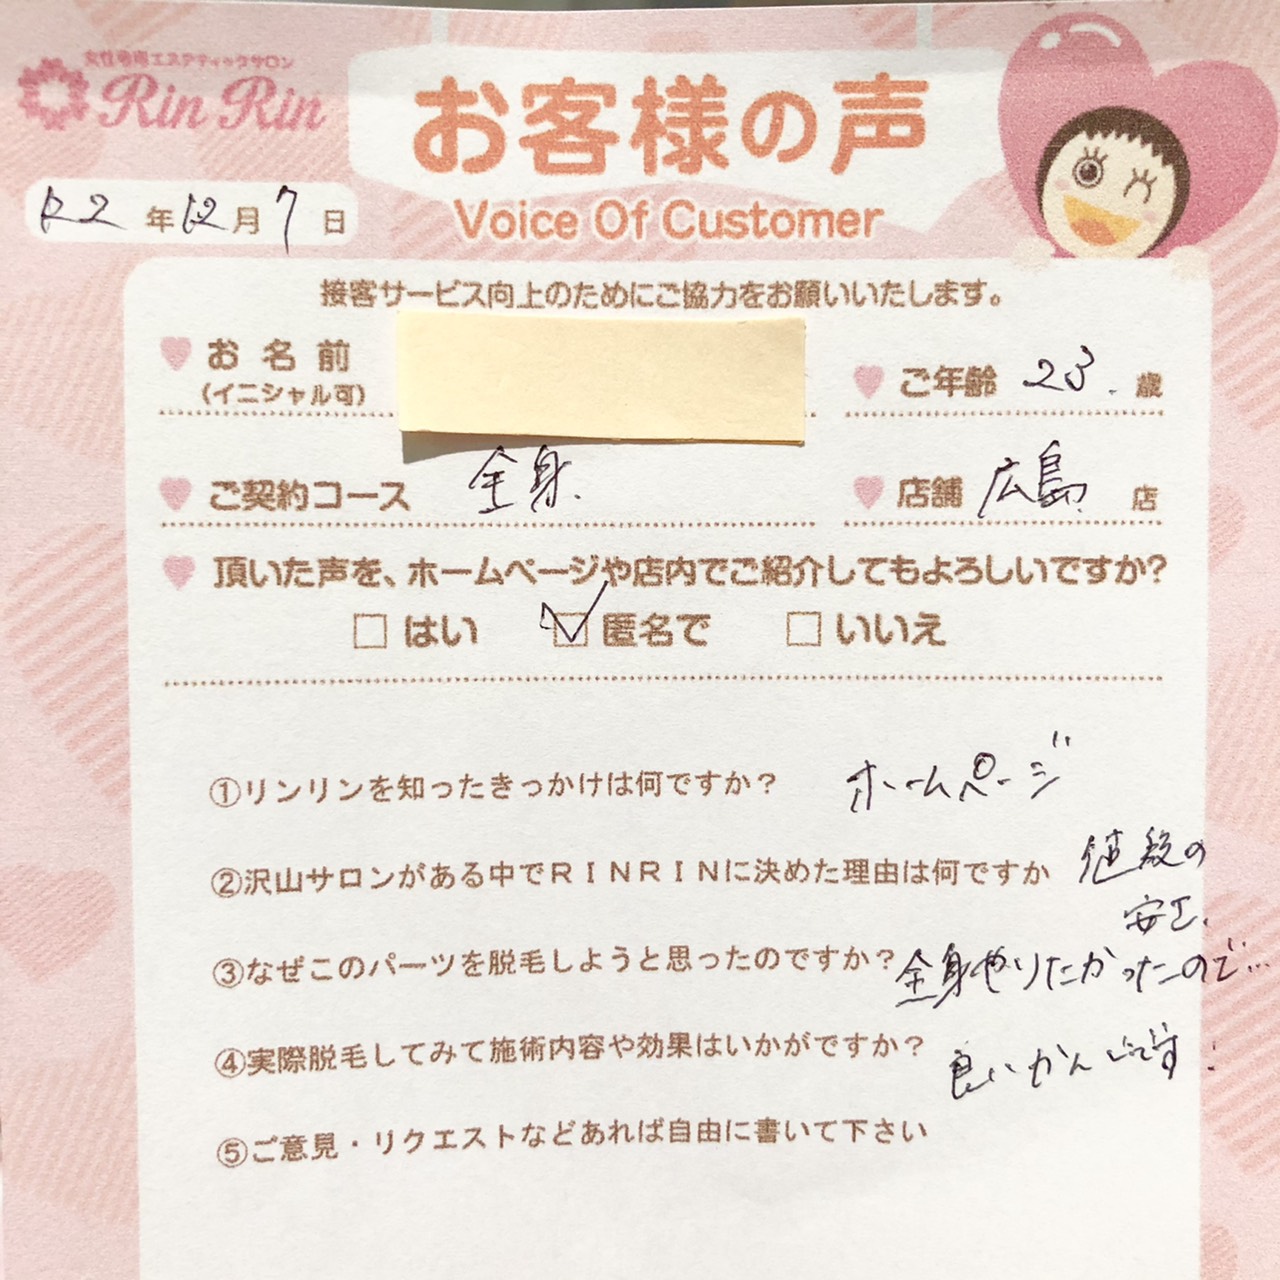 女性専用エステティックサロン
Rin Rin
お客様の声
Voice Of Customer
R2年12月7日
接客サービス向上のためにご協力をお願いいたします。
お名前
(イニシャル可)
ご年齢 23.歳
ご契約コース 全身.
店舗 広島 店
頂いた声を、ホームページや店内でご紹介してもよろしいですか?
はい 匿名で いいえ
①リンリンを知ったきっかけは何ですか? ホームページ
②沢山サロンがある中でRINRINに決めた理由は何ですか 値段の
安さ.
③なぜこのパーツを脱毛しようと思ったのですか? 全身やりたかったので…
④実際脱毛してみて施術内容や効果はいかがですか? 良いかんじです!
⑤ご意見・リクエストなどあれば自由に書いて下さい